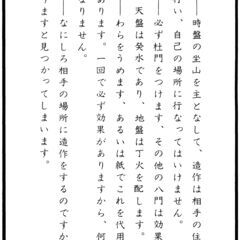 ――時盤の坐山を主となして、造作は相手の住
行い、自己の場所に行なってはいけません。
――必ず杜門をつけます、その他の八門は効果
天盤は癸水であり、地盤は丁火を配します。
――わらをうめます、あるいは紙でこれを代用
あります。一回で必ず効果がありますから、何
なりません。
――なにしろ相手の場所に造作をするのですか
りますと見つかってしまいます。